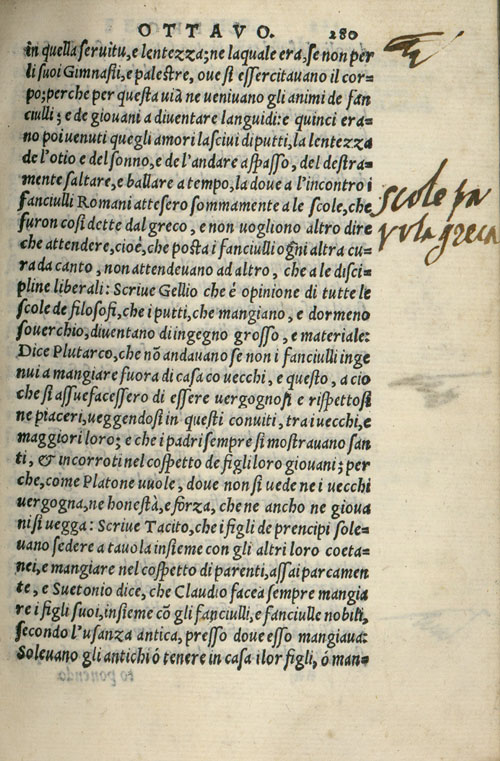 OTTAVO. 280
in quella seruitu, e lentezza; ne laquale era, se non per
li suoi Gimnasii, e palestre, oue si essercitauano il cor=
po; perche per questa uià ne ueniuano gli animi de fan
ciulli; e de giouani a diuentare languidi: e quinci era=
no poi uenuti quegli amori lasciui di putti, la lentezza
de l'otio e del sonno, e de l'andare a spasso, del destra=
mente saltare, e ballare a tempo, la doue a l'incontro i
fanciulli Romani attesero sommamente a le scole, che
furon cosi dette dal greco, e non uogliono altro dire
che attendere, cioè, che posta i fanciulli ogni altra cu=
ra da canto, non attendeuano ad altro, che a le disci=
pline liberali: Scriue Gellio che é opinione di tutte le
scole de filosofi, che i putti, che mangiano, e dormeno
souerchio, diuentano di ingegno grosso, e materiale:
Dice Plutarco, che nō andauano se non i fanciulli inge
nui a mangiare fuora di casa co uecchi, e questo, a cio
che si assuefacessero di essere uergognosi e rispettosi
ne piaceri, ueggendosi in questi conuiti, tra i uecchi, e
maggiori loro; e che i padri sempre si mostrauano san
ti, & incorroti nel cospetto de figli loro giouani; per
che, come Platone uuole, doue non si uede ne i uecchi
uergogna, ne honestà, e forza, che ne ancho ne gioua
ni si uegga: Scriue Tacito, che i figli de prencipi sole=
uano sedere a tauola insieme con gli altri loro coeta=
nei, e mangiare nel cospetto di parenti, assai parcamen
te, e Suetonio dice, che Claudio facea sempre mangia
re i figli suoi, insieme cō gli fanciulli, e fanciulle nobili,
secondo l'usanza antica, presso doue esso mangiaua:
Soleuano gli antichi ó tenere in casa i lor figli, ó man=
scole pa
rola greca